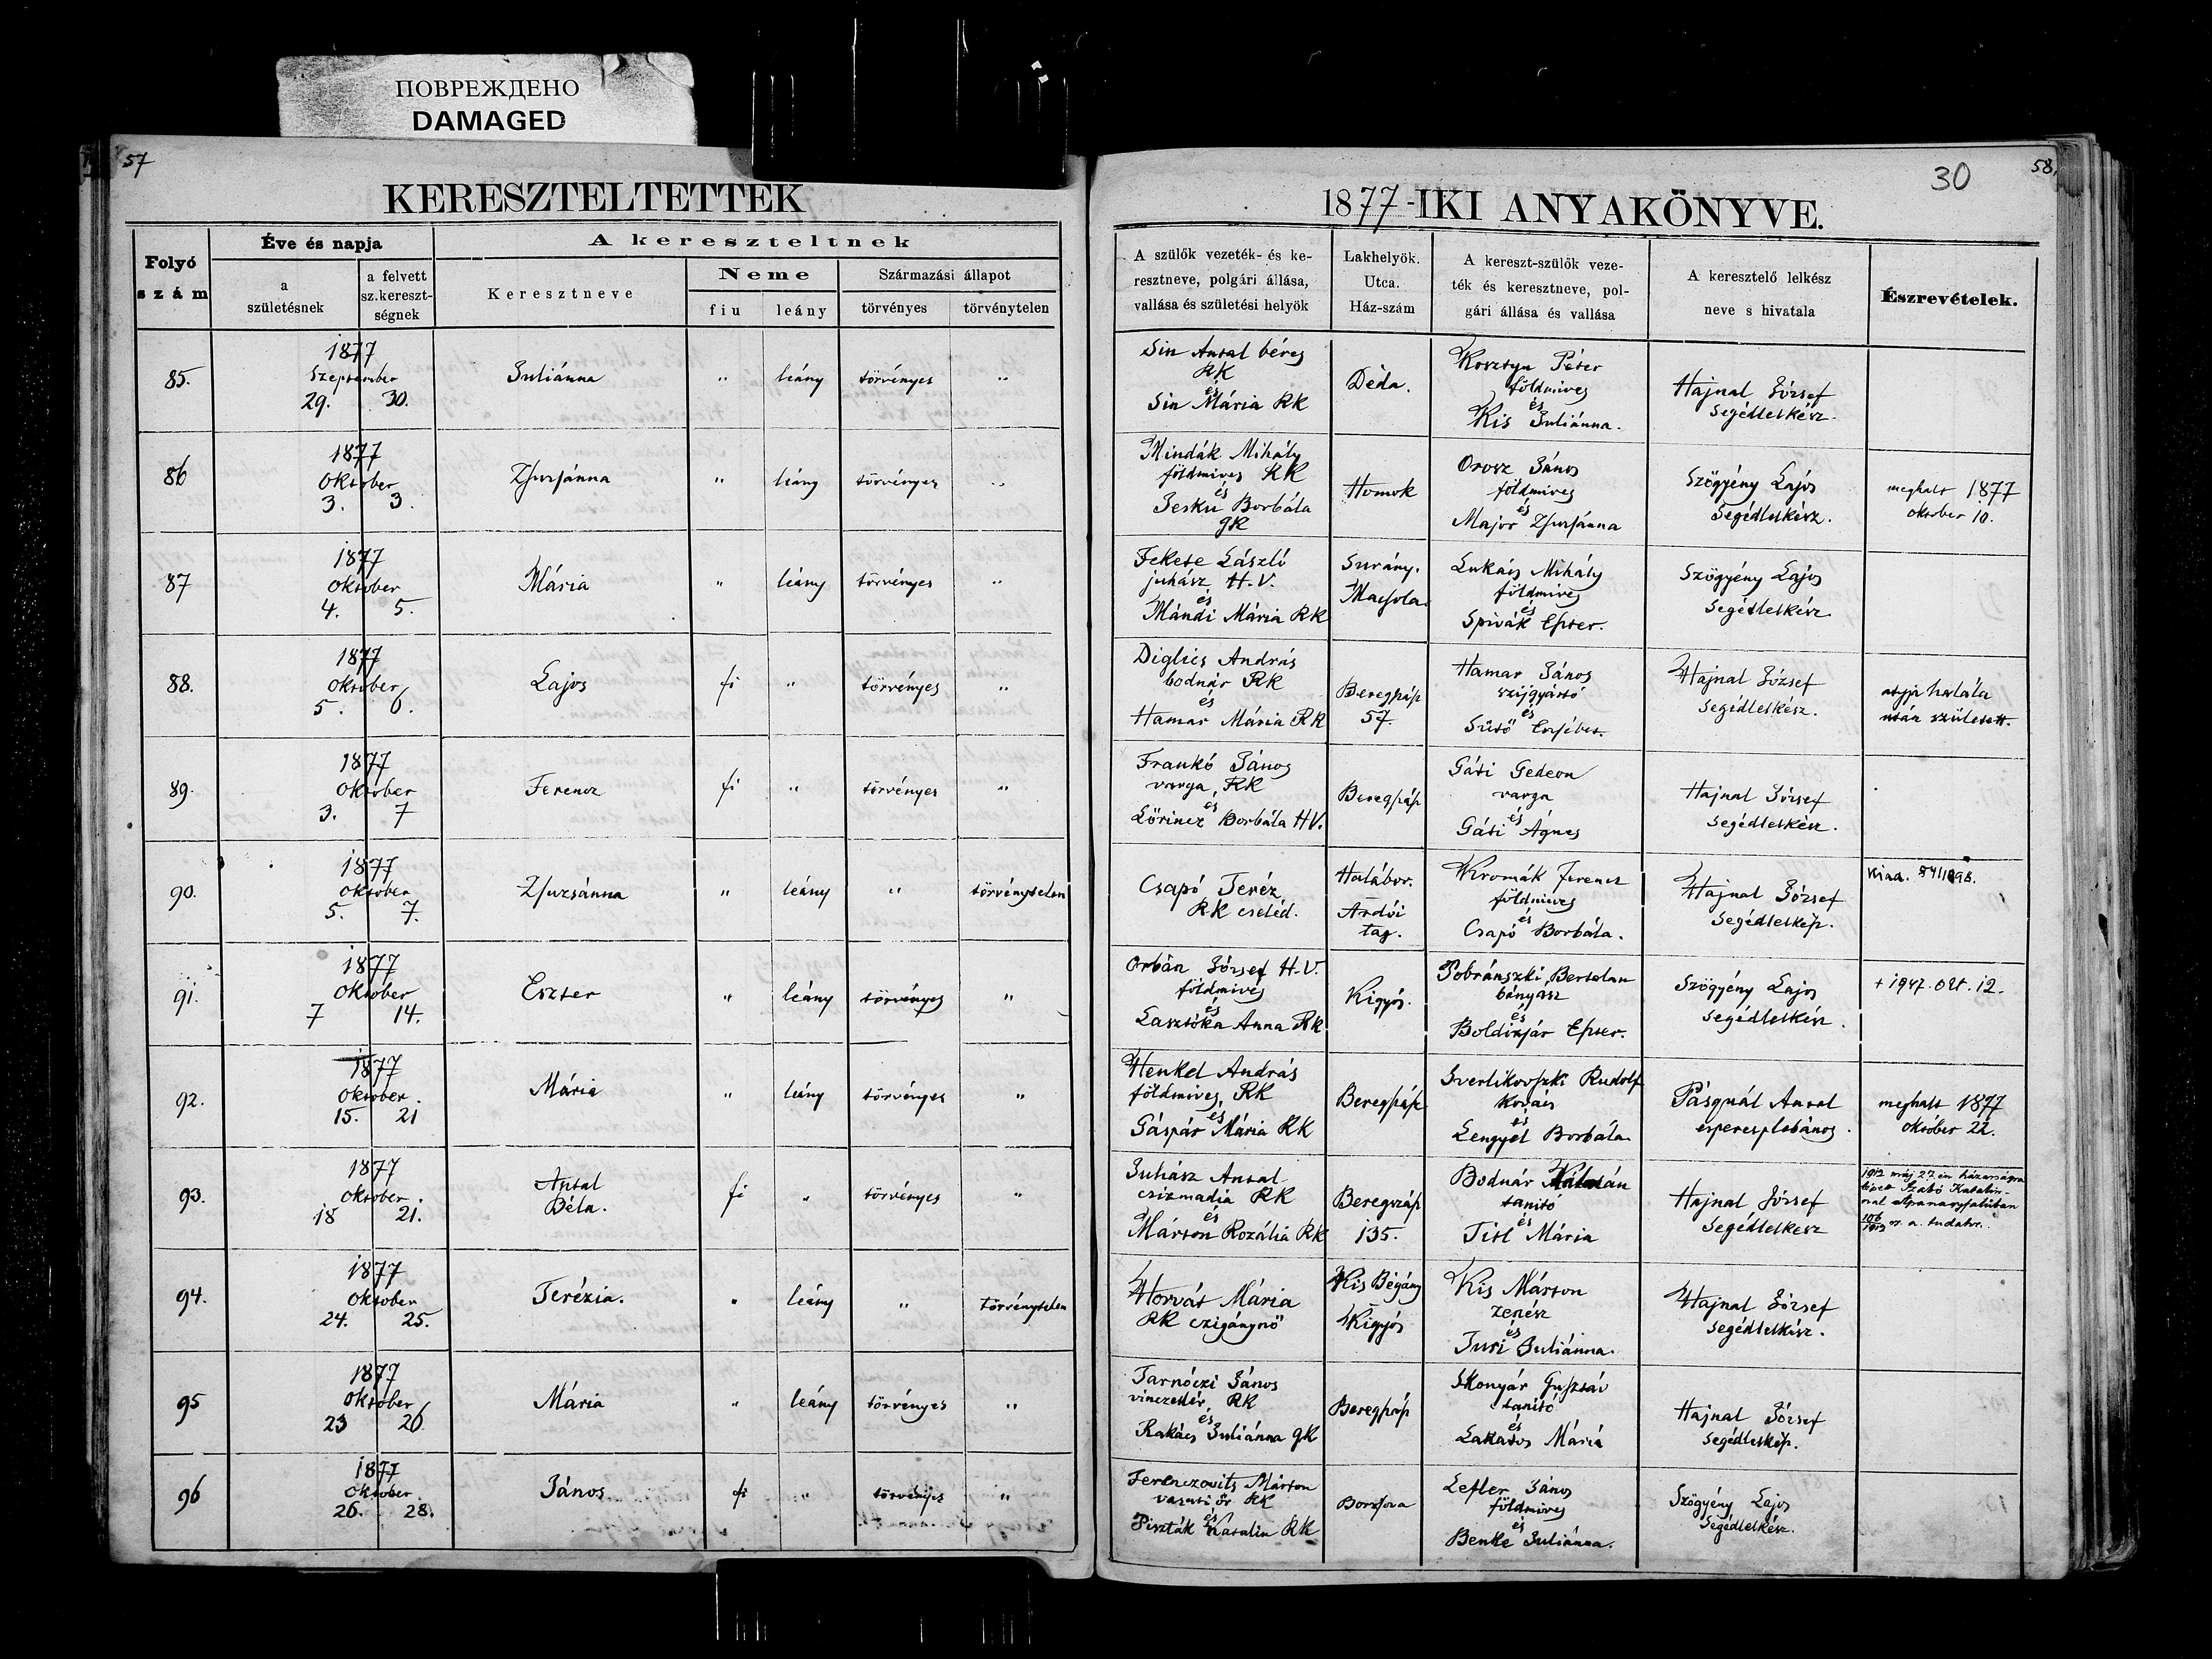 ПОВРЕЖДЕНО
DAMAGED
57
KERESZTELTETTEK
Folyó szám
Éve és napja
a születésnek
a felvett sz.kereszt-ségnek
A kereszteltnek
Keresztneve
Neme
fiu
leány
Származási állapot
törvényes
törvénytelen
30
58.
1877-IKI ANYAKÖNYVE.
A szülők vezeték- és ke-
resztneve, polgári állása,
vallása és születési helyök
Lakhelyök.
Utca.
Ház-szám
A kereszt-szülők veze-
ték és keresztneve, pol-
gári állása és vallása
A keresztelő lelkész
neve s hivatala
Észrevételek.
85.
1877
Szeptember
29. 30.
Juliánna
" leány törvényes "
Sin Antal béres
RK
és
Sin Mária RK
Déda.
Kosztyu Péter
földmives
és
Kis Juliánna.
Hajnal József
Segédlelkész.
86
1877
Október
3. 3.
Zsuzsánna
" leány törvényes "
Mindák Mihály
földmives RK
és
Jesku Borbála
gK
Homok
Orosz János
földmives
és
Major Zsuzsánna
Szögyény Lajos
Segédlelkész.
meghalt 1877
október 10.
87
1877
Október
4. 5.
Mária
" leány törvényes "
Fekete László
juhász H.V.
és
Mándi Mária RK
Surány.
Macsola.
Lukács Mihály
földmives
és
Spivák Eszter.
Szögyény Lajos
Segédlelkész
88.
1877
Október
5. 6.
Lajos
fi " törvényes "
Diglics András
bodnár RK
és
Hamar Mária RK
Beregszász
57.
Hamar János
szijgyártó
és
Sütő Erzsébet.
Hajnal József
Segédlelkész.
atyja halála
után született.
89.
1877
Október
3. 7
Ferencz
fi " törvényes "
Frankó János
varga, RK
és
Lőrincz Borbála HV.
Beregszász
Gáti Gedeon
varga
és
Gáti Ágnes
Hajnal József
Segédlelkész.
90.
1877
Október
5. 7.
Zsuzsánna
" leány " törvénytelen
Csapó Teréz
RK cseléd.
Halábor.
Ardói
tag.
Kromák Ferencz
földmives
és
Csapó Borbála.
Hajnal József
Segédlelkész.
Kiad.
91.
1877
Október
7 14.
Eszter
" leány törvényes "
Orbán József H.V.
földmives
és
Lasztóka Anna RK
Kigyós.
Dobránszki Bertalan
bányasz
és
Boldizsár Eszter.
Szögyény Lajos
Segédlelkész.
+ 1947. okt. 12.
92.
1877
Október.
15. 21
Mária
" leány törvényes "
Henkel András
földmives, RK
és
Gáspár Mária RK
Beregszász
Sverlikovszki Rudolf
kovács
és
Lengyel Borbála.
Pásquál Antal
esperesplebános.
meghalt 1877
október 22.
93.
1877
Október.
18 21.
Antal
Béla.
fi " törvényes "
Juhász Antal
csizmadia RK
és
Márton Rozália RK
Beregszász
135.
Bodnár Kálmán
tanitó
és
Titl Mária
Hajnal József
Segédlelkesz
1912 máj 27.én házasságra
lépett Szabó Katalin-
nal
sz. a. tudatv.
94.
1877
Október
24. 25.
Terézia.
" leány " törvénytelen
Horvát Mária
RK czigánynő
Kis Bégány
Kigyós
Kis Márton
zenész
és
Turi Juliánna.
Hajnal József
Segédlelkész.
95
1877
Október
23 26
Mária
" leány törvényes "
Tarnóczi János
vinczellér, RK
és
Rakács Juliánna gK
Beregszász
Skonyár Gusztáv
tanitó
és
Lakatos Mária
Hajnal József
Segédlelkész.
96
1877
Október
26. 28.
János
fi " törvényes "
Ferenczovits Márton
vasuti őr RK
és
Piszták Katalin RK
Borzsova
Lefler János
földmives
és
Benke Juliánna.
Szögyény Lajos
Segédlelkész.